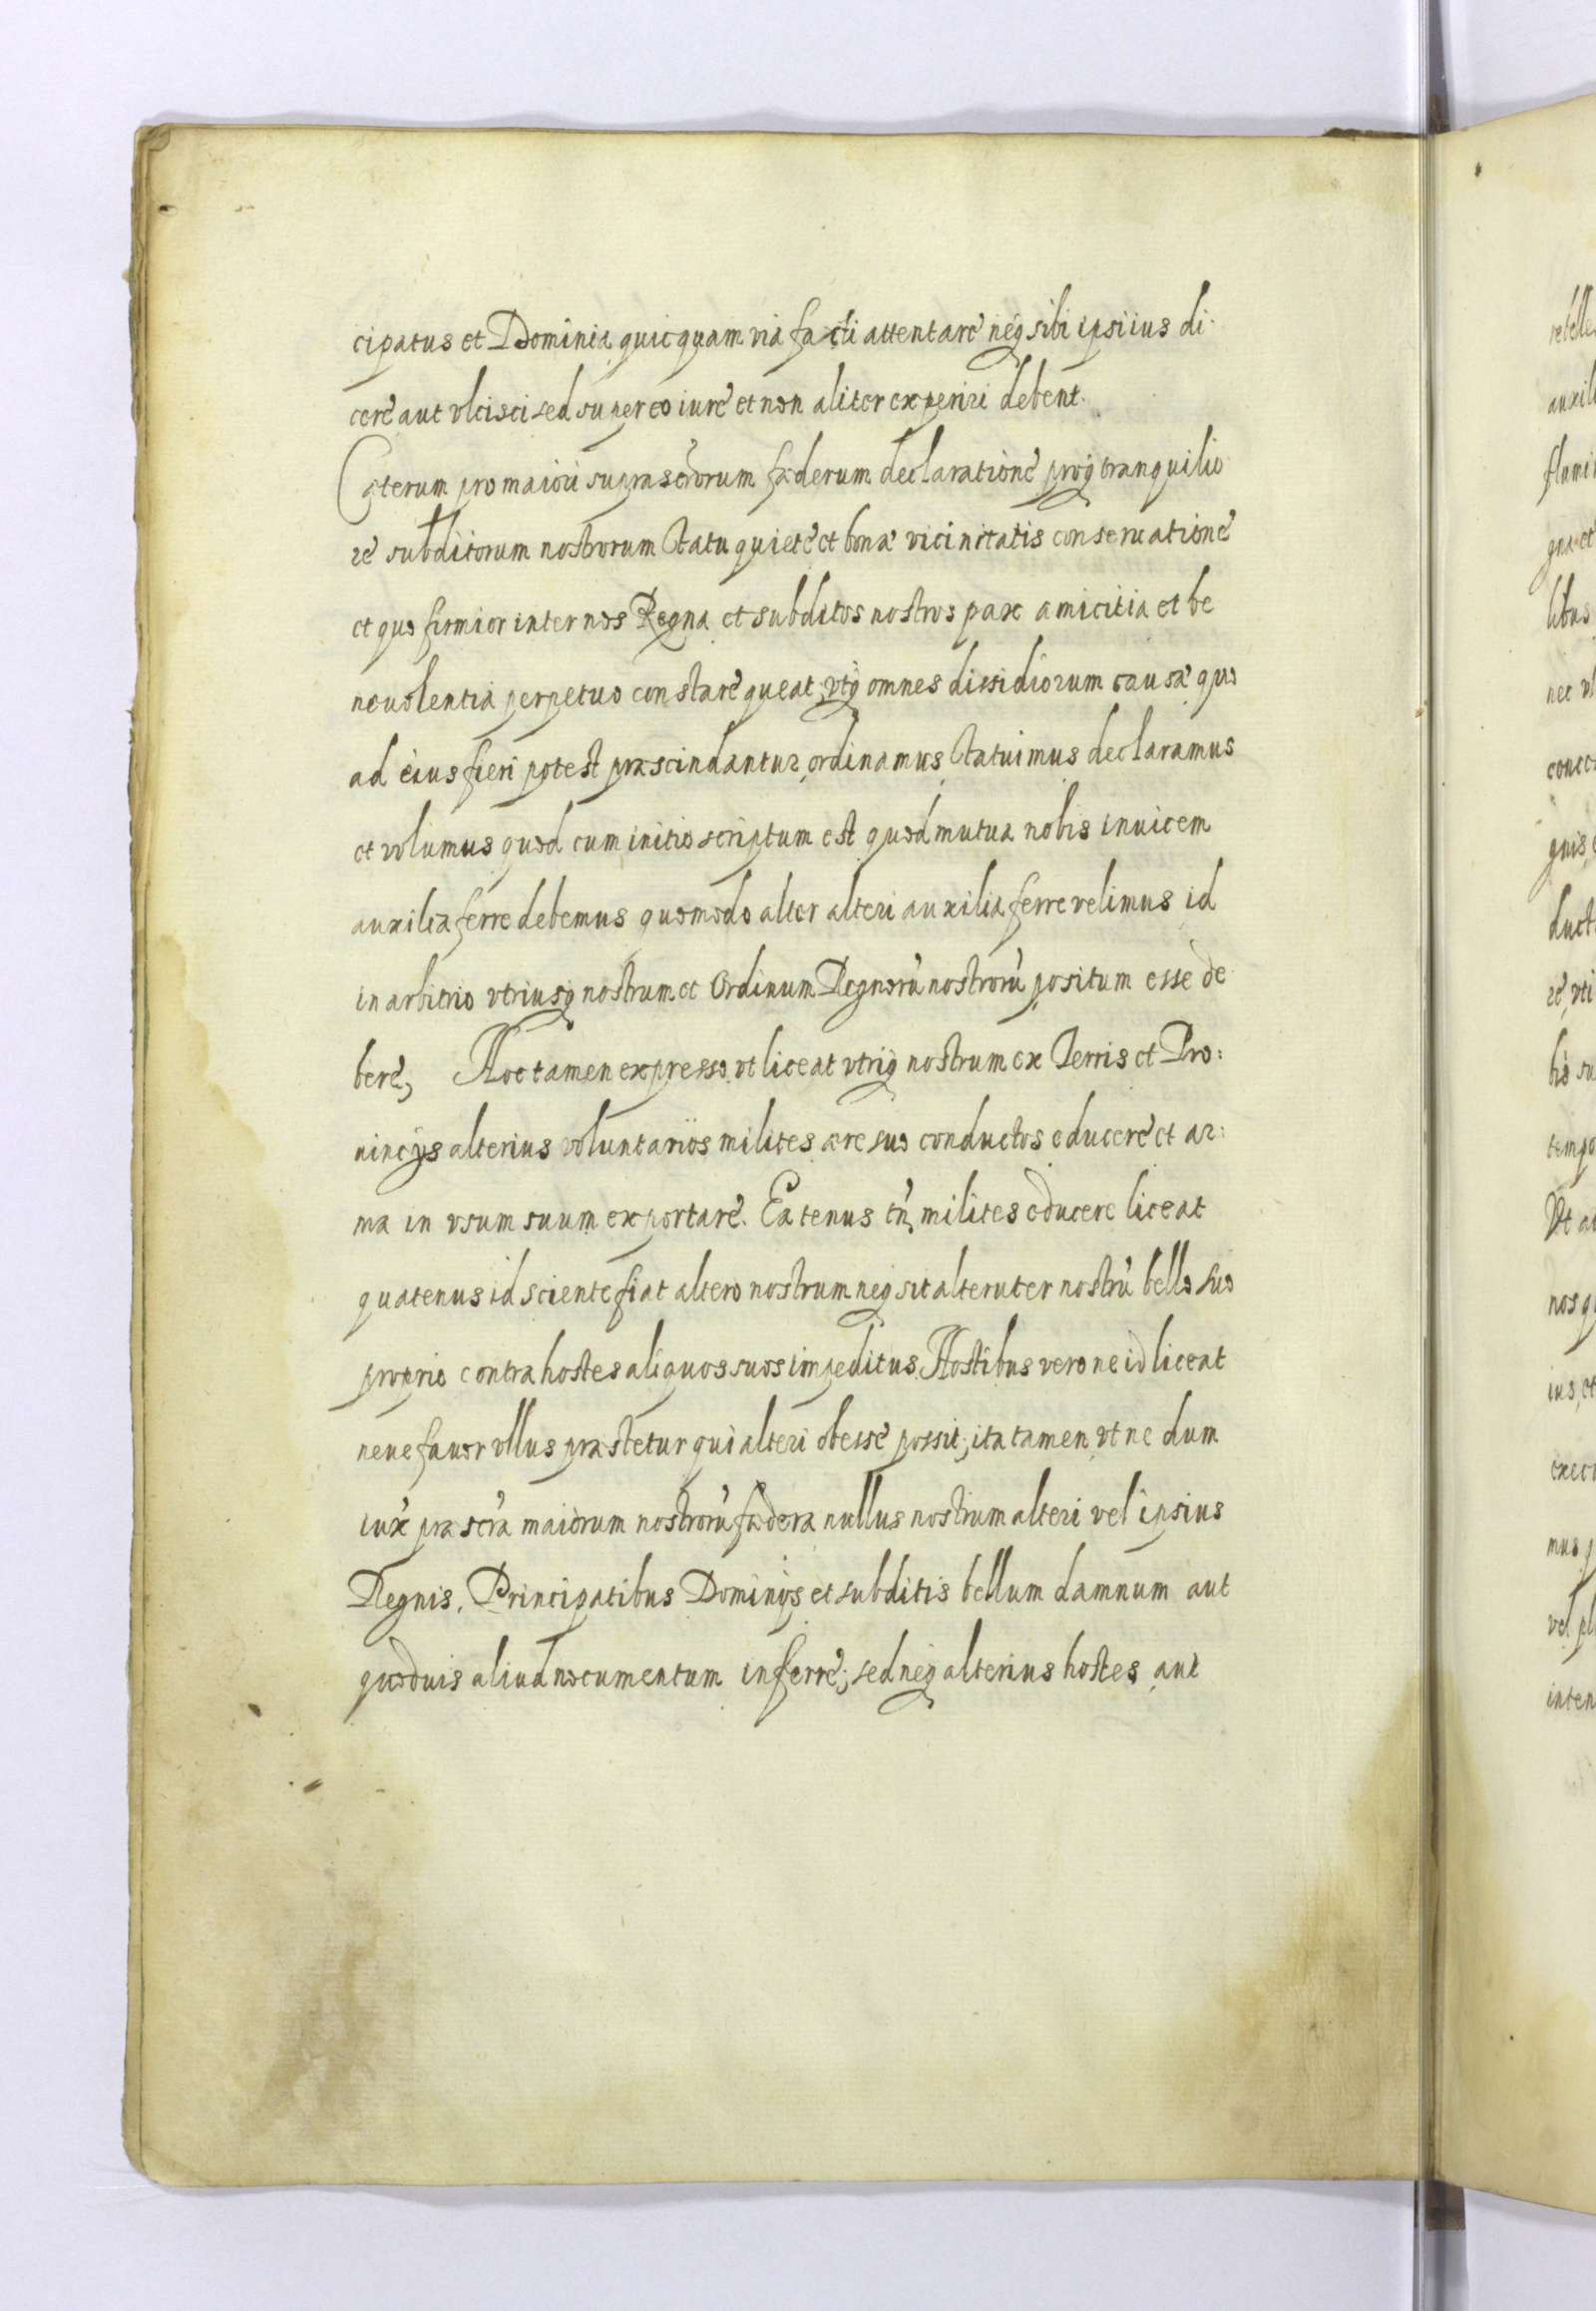 cipatus et Dominia quicquam via facti attentare neq sibi ipsi ius di-
cere aut vlcisci sed super eo iure et non aliter experiri debent.
Cæterum pro maiori suprascrõrum fæderum declaratione proq tranquilio
re subditorum nostrorum statu quiete et bonæ vicinitatis conseruatione
et quo firmior inter nos Regna et subditos nostros pax amicitia et be
neuolentia perpetuo constare queat, vtq omnes dissidiorum causæ quo
ad eius fieri potest præscindantur, ordinamus, statuimus declaramus
et volumus quod cum initio scriptum est quod mutua nobis inuicem
auxilia ferre debemus quomodo alter alteri auxilia ferre velimus id
in arbitrio vtriusq nostrum et Ordinum Regnorũ nostrorũ positum esse de
bere, Hoc tamen expresso, vt liceat vtriq nostrum ex Terris et Pro:
uincijs alterius voluntarios milites ære suo conductos educere et ar:
ma in vsum suum exportare. Eatenus tñ milites educere liceat
quatenus id sciente fiat altero nostrum neq sit alteruter nostrũ bello suo
proprio contra hostes aliquos suos impeditus. Hostibus vero ne id liceat
neue fauor vllus præstetur qui alteri obesse possit, ita tamen vt ne dum
iux̃ præscrã maiorum nostrorũ fædera nullus nostrum alteri vel ipsius
Regnis, Principatibus Dominijs et subditis bellum damnum aut
quoduis aliud nocumentum inferre; sed neq alterius hostes aut